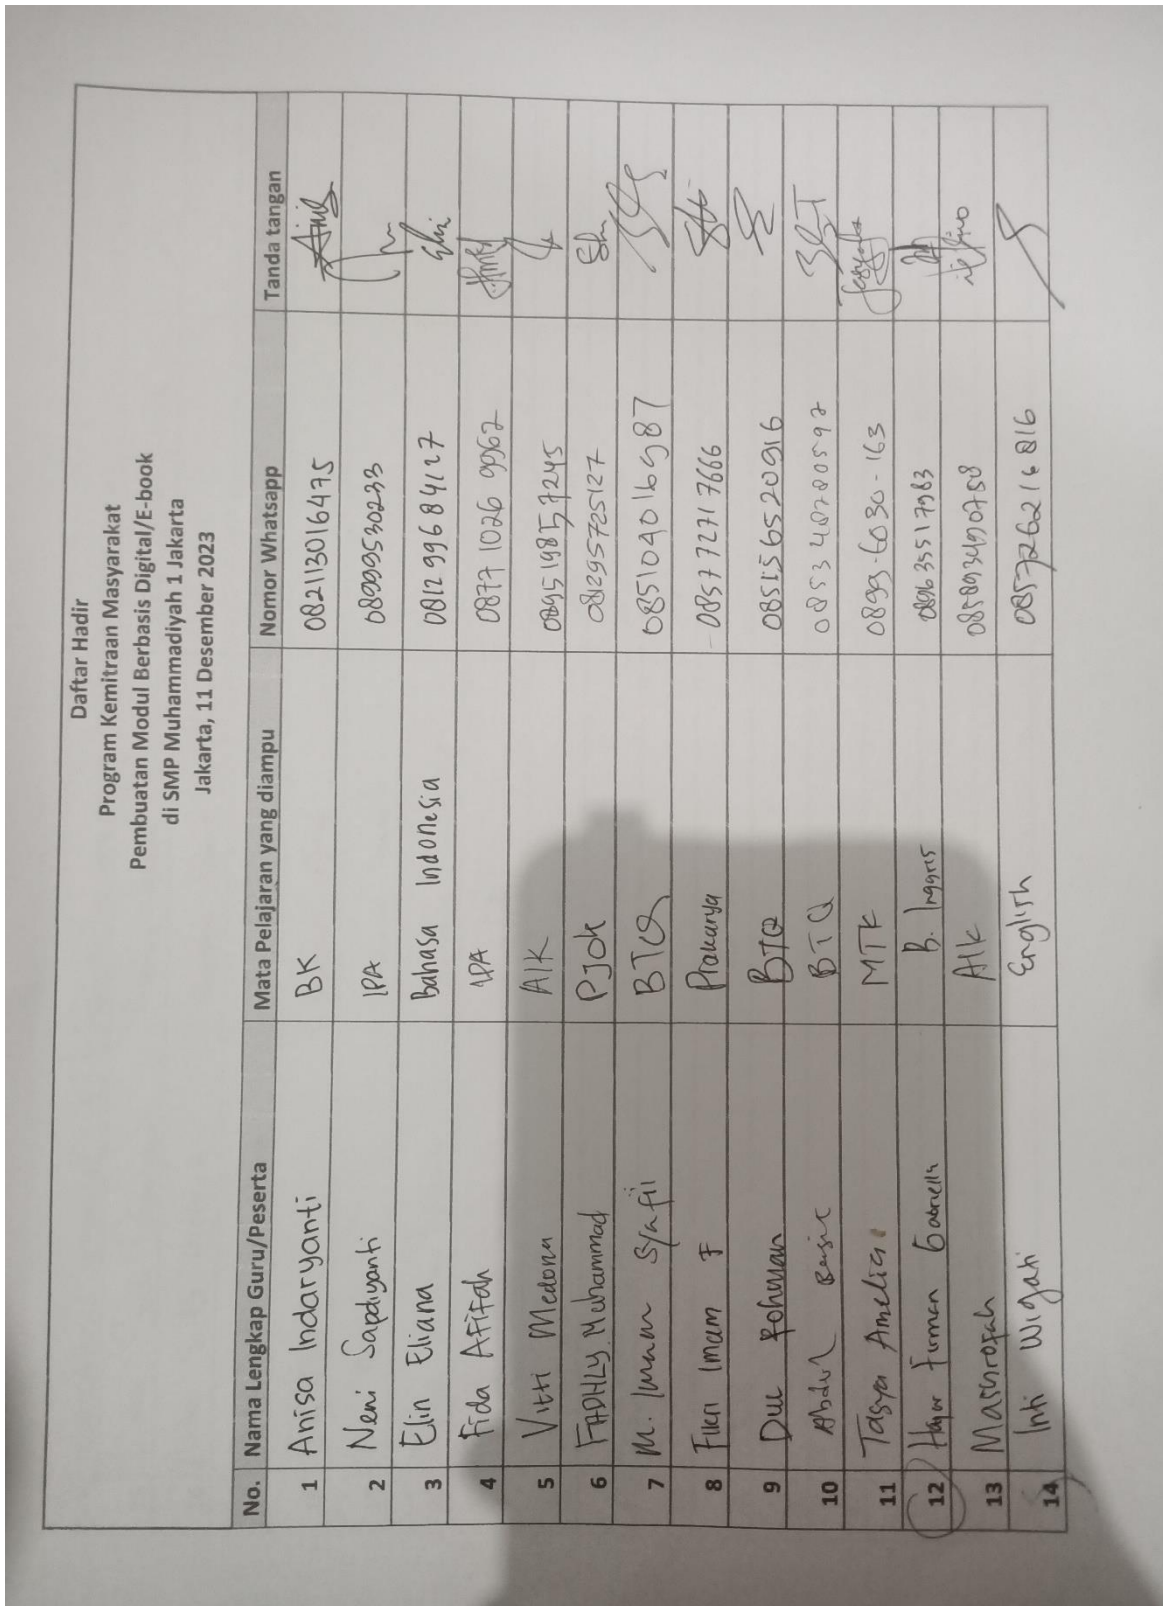 Daftar Hadir
Program Kemitraan Masyarakat
Pembuatan Modul Berbasis Digital/E-book
di SMP Muhammadiyah 1 Jakarta
Jakarta, 11 Desember 2023
No. Nama Lengkap Guru/Peserta Mata Pelajaran yang diampu Nomor Whatsapp Tanda tangan
1 Anisa Indaryanti BK 082113016475
2 Neni Sapdiyanti IPA 0899530233
3 Elin Eliana Bahasa Indonesia 081299684127
4 Fida Afifah IPA 0877 1026 9962
5 Vitti Medona AIK 0895198557245
6 FADHLY. Muhammad PJOK 081295725127
7 M. Imam Syafii BTQ 085104016987
8 Fikri Imam F Prakarya 085772717666
9 Rohman BTQ 085156520916
10 Abdul BTQ 085340780597
11 Tasya Amelia MTK 0899-6030-163
12 Firman Gabriella B. Inggris
13 AIK
14 Inti Wigati English